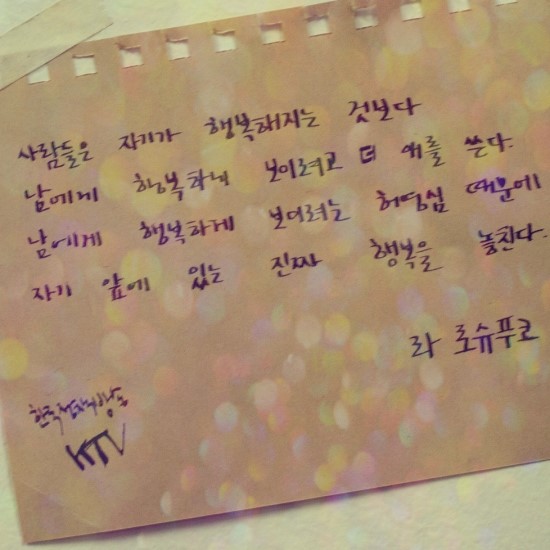 사람들은 자기가 행복해지는 것보다
남에게 행복하게 보이려고 더 애를 쓴다.
남에게 행복하게 보이려는 허영심 때문에
자기 앞에 있는 진짜 행복을 놓친다.
라 로슈푸코
KTV